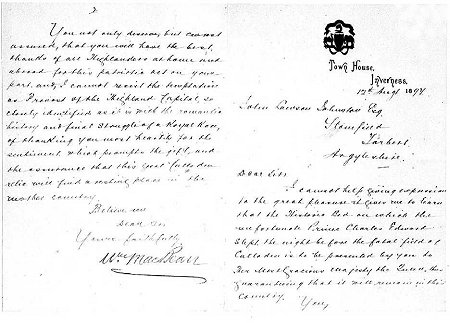 Town House,
Inverness,
12th Augt 1897
John Lawson Johnston Esq
Stonefield
Tarbert
Argyleshire.
Dear Sir
I cannot help giving expression
to the great pleasure it gives me to learn
that the Historic Bed on which the
unfortunate Prince Charles Edward
slept the night before the fatal field of
Culloden is to be presented by you to
Her Most Gracious Majesty the Queen, thus
guaranteeing that it will remain in this
Country.
You,
2
You not only deserve, but can rest
assured, that you will have the best
thanks of all Highlanders at home and
abroad for this patriotic act on your
part, and, I cannot resist the temptation
as Provost of the Highland Capital, so
closely identified as it is with the romantic
history and final struggle of a Royal Race,
of thanking you most heartily for the
sentiment which prompts the gift, and
the assurance that this great Culloden
relic will find a resting place in the
mother country.
Believe me
Dear Sir
Yours faithfully
Wm MacBean